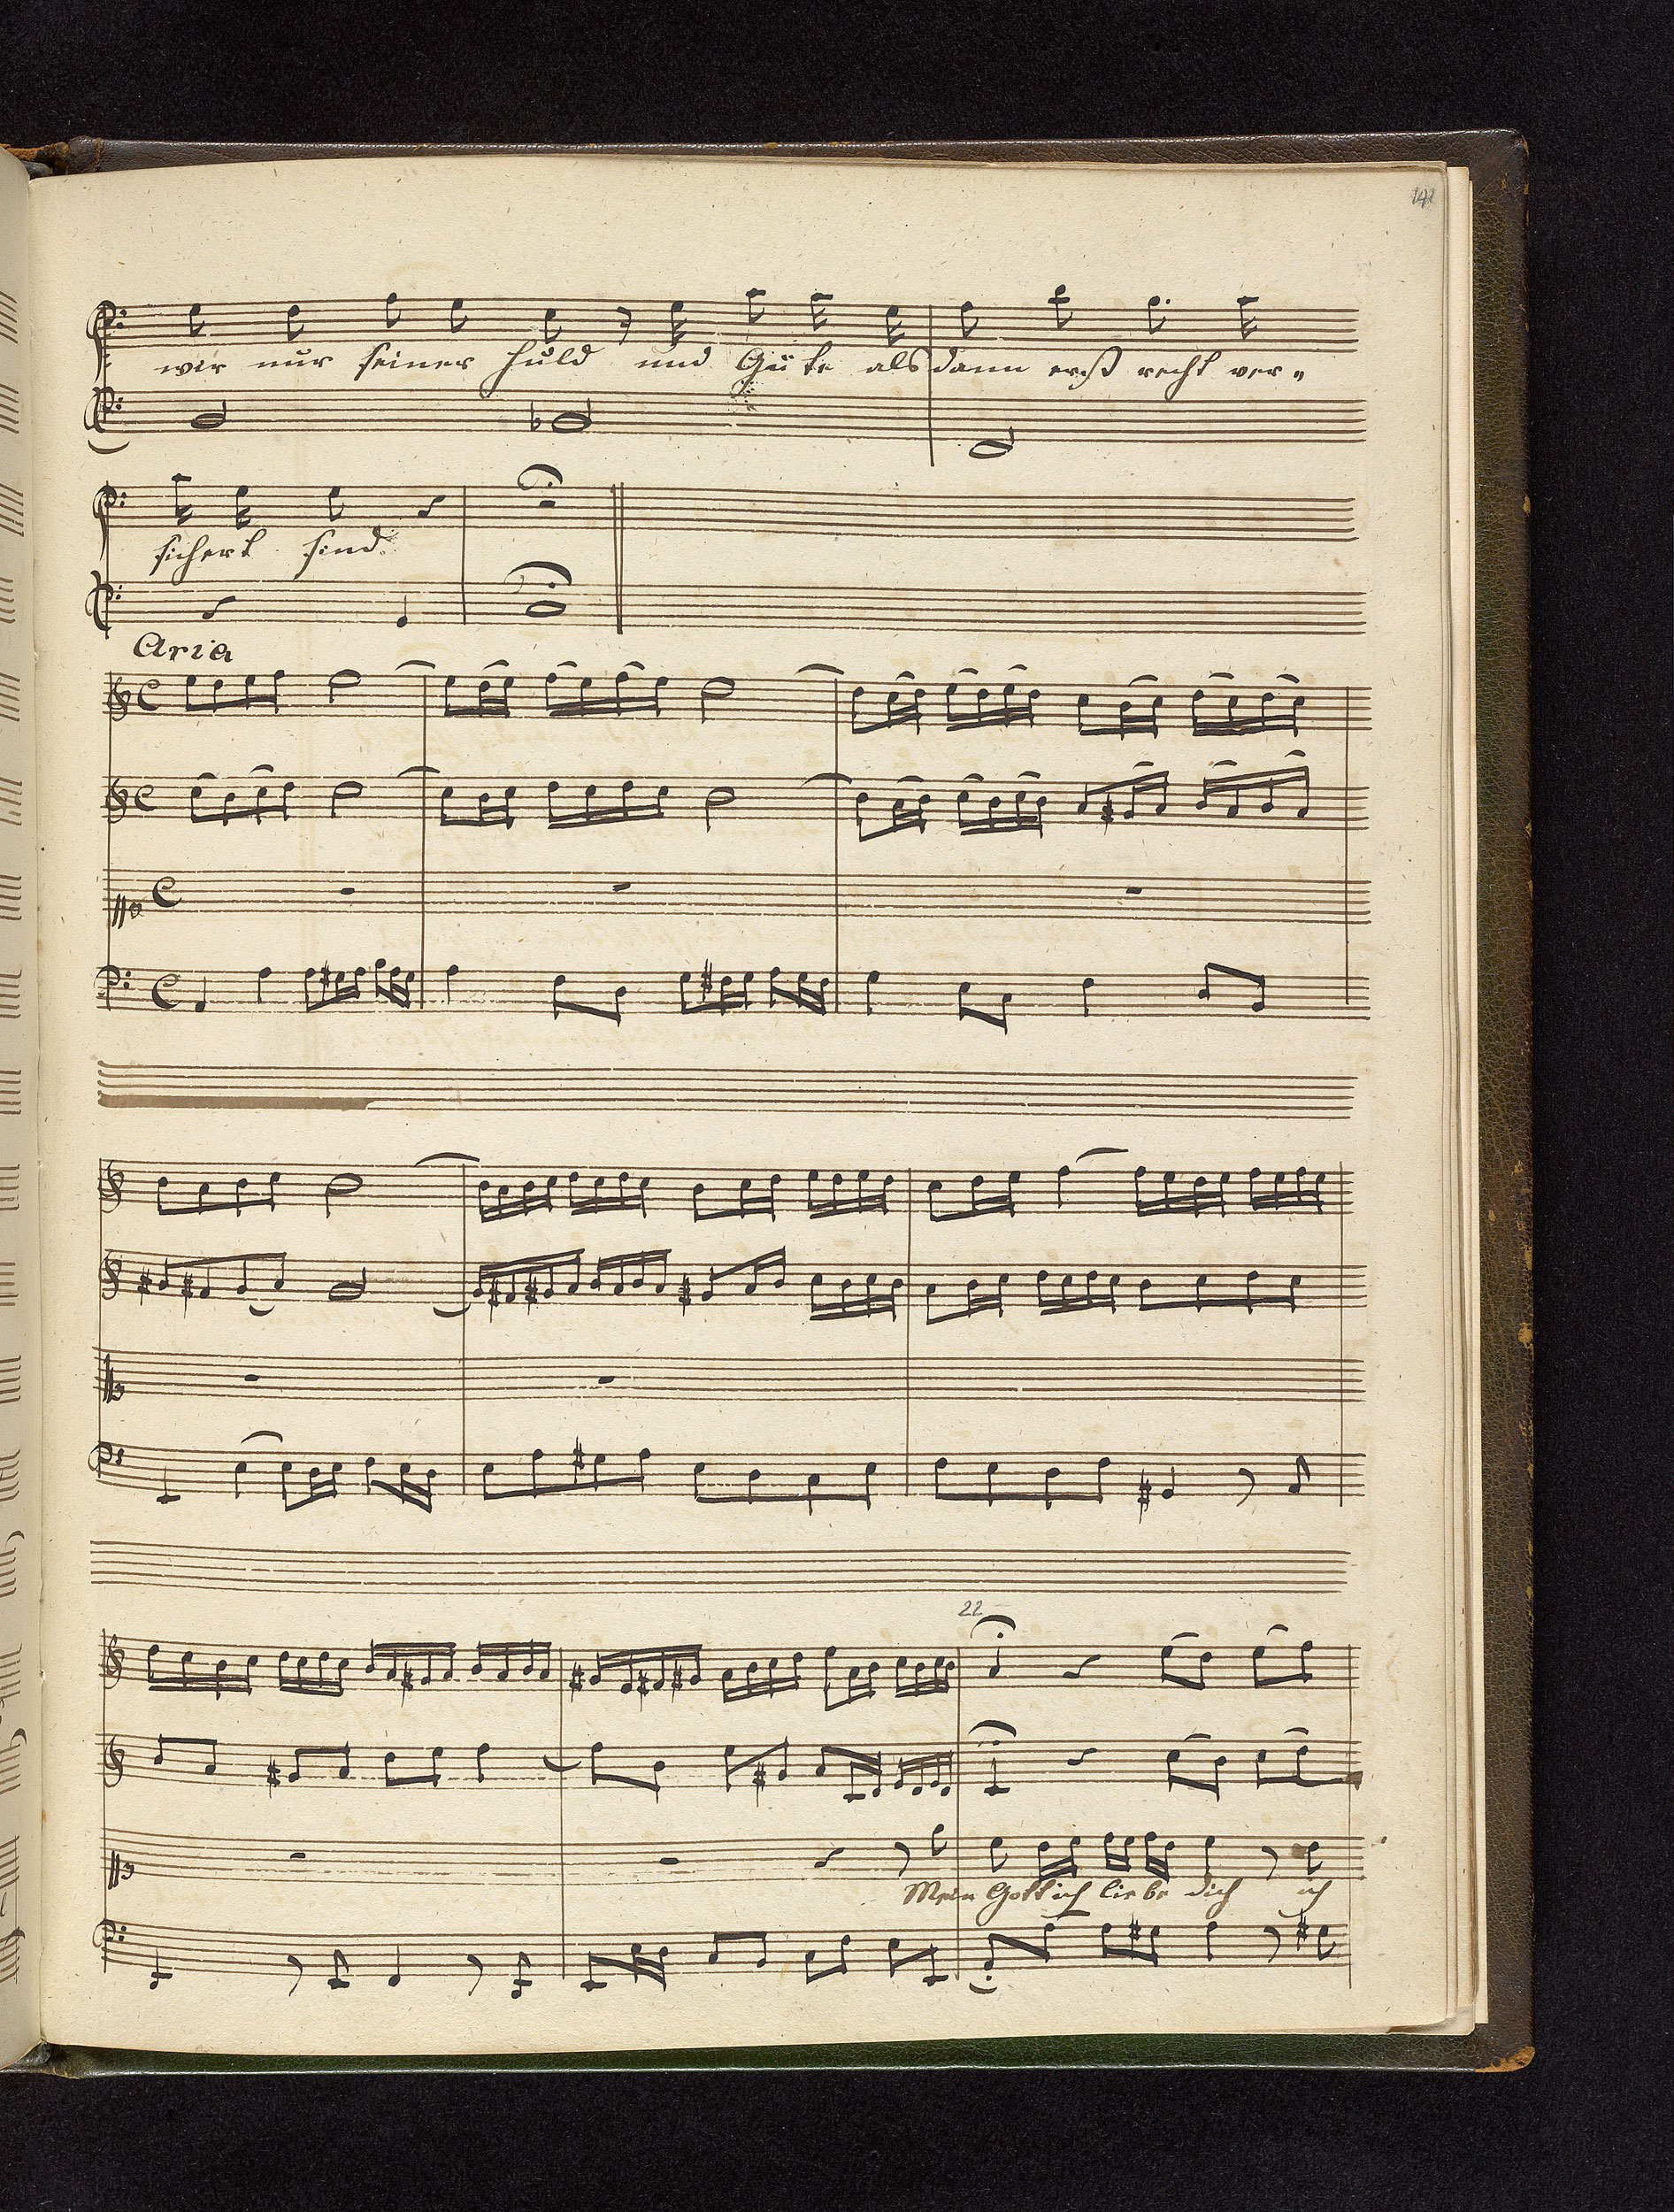 141
wir nur seiner Huld und Güte alsdann erst recht ver„
sichert sind.
Aria
22
Mein Gott ich liebe dich ich